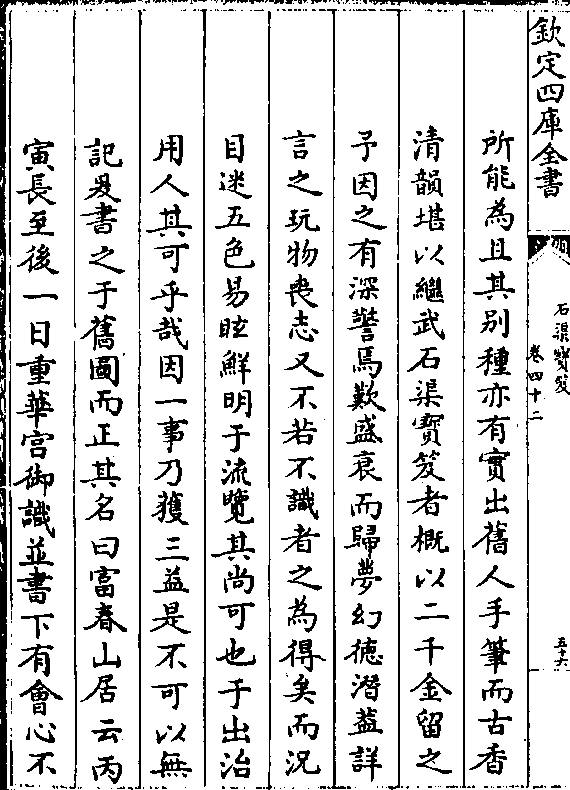 欽定四庫全書
石渠寶笈
卷四十二
五十六
所能為且其别種亦有實出舊人手筆而古香
清韻堪以繼武石渠寶笈者概以二千金留之
予因之有深警焉歎盛衰而歸夢幻徳潛葢詳
言之玩物喪志又不若不識者之為得矣而況
目迷五色易眩鮮明于流覽其尚可也于出治
用人其可乎哉因一事乃獲三益是不可以無
記爰書之于舊圖而正其名曰富春山居云丙
寅長至後一日重華宫御識並書下有會心不